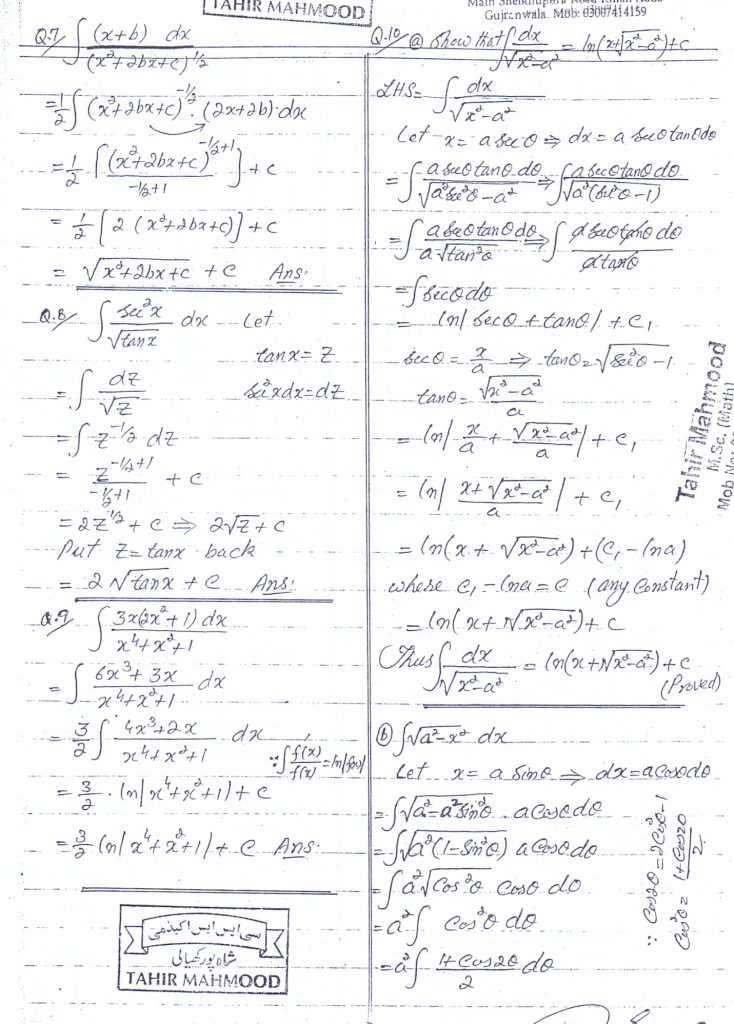 TAHIR MAHMOOD
Gujranwala. Mob: 03007414159
Q.7 ∫ (x+b) dx / (x²+2bx+c)^1/2
= 1/2 ∫ (x²+2bx+c)^-1/2 . (2x+2b)·dx
= 1/2 [(x²+2bx+c)^-1/2+1 / -1/2+1] + c
= 1/2 [2 (x²+2bx+c)] + c
= √x²+2bx+c + c Ans.
Q.8 ∫ sec²x / √tanx dx Let
tanx = Z
= ∫ dZ / √Z sec²xdx = dZ
= ∫ Z^-1/2 dZ
= Z^-1/2+1 / -1/2+1 + c
= 2Z^1/2 + c ⇒ 2√Z + c
Put Z = tanx back
= 2√tanx + c Ans:
Q.9 ∫ 3x(2x²+1) dx / x⁴+x²+1
= ∫ 6x³+3x / x⁴+x²+1 dx
= 3/2 ∫ 4x³+2x / x⁴+x²+1 dx ∵ ∫ f(x)' / f(x) = ln|f(x)|
= 3/2 . ln|x⁴+x²+1| + c
= 3/2 ln|x⁴+x²+1| + c Ans.
سی ایس ایس اکیڈمی
شاہ پور کھیالی
TAHIR MAHMOOD
Q.10 (a) Show that ∫ dx / √x²-a² = ln(x+√x²-a²)+c
LHS = ∫ dx / √x²-a²
Let x = a secθ ⇒ dx = a secθ tanθ dθ
= ∫ a secθ tanθ dθ / √a²sec²θ-a² ⇒ ∫ a secθ tanθ dθ / √a²(sec²θ-1)
= ∫ a secθ tanθ dθ / a√tan²θ ⇒ ∫ a secθ tanθ dθ / a tanθ
= ∫ secθ dθ
= ln| secθ + tanθ | + c₁
secθ = x/a ⇒ tanθ = √sec²θ-1
tanθ = √x²-a² / a
= ln| x/a + √x²-a² / a | + c₁
= ln| x+√x²-a² / a | + c₁
= ln(x + √x²-a²) + (c₁ - lna)
where c₁ - lna = c (any Constant)
= ln( x + √x²-a²) + c
Thus ∫ dx / √x²-a² = ln(x+√x²-a²) + c
(Proved)
(b) ∫√a²-x² dx
Let x = a Sinθ ⇒ dx = a cosθ dθ
= ∫√a²-a²Sin²θ . a Cosθ dθ
= ∫√a²(1-Sin²θ) a Cosθ dθ
= ∫ a²√Cos²θ Cosθ dθ
= a² ∫ Cos²θ dθ
= a² ∫ 1+Cos2θ / 2 dθ
∵ Cos2θ = 2Cos²θ-1
Cos²θ = 1+Cos2θ / 2
Tahir Mahmood
M.Sc. (Math)